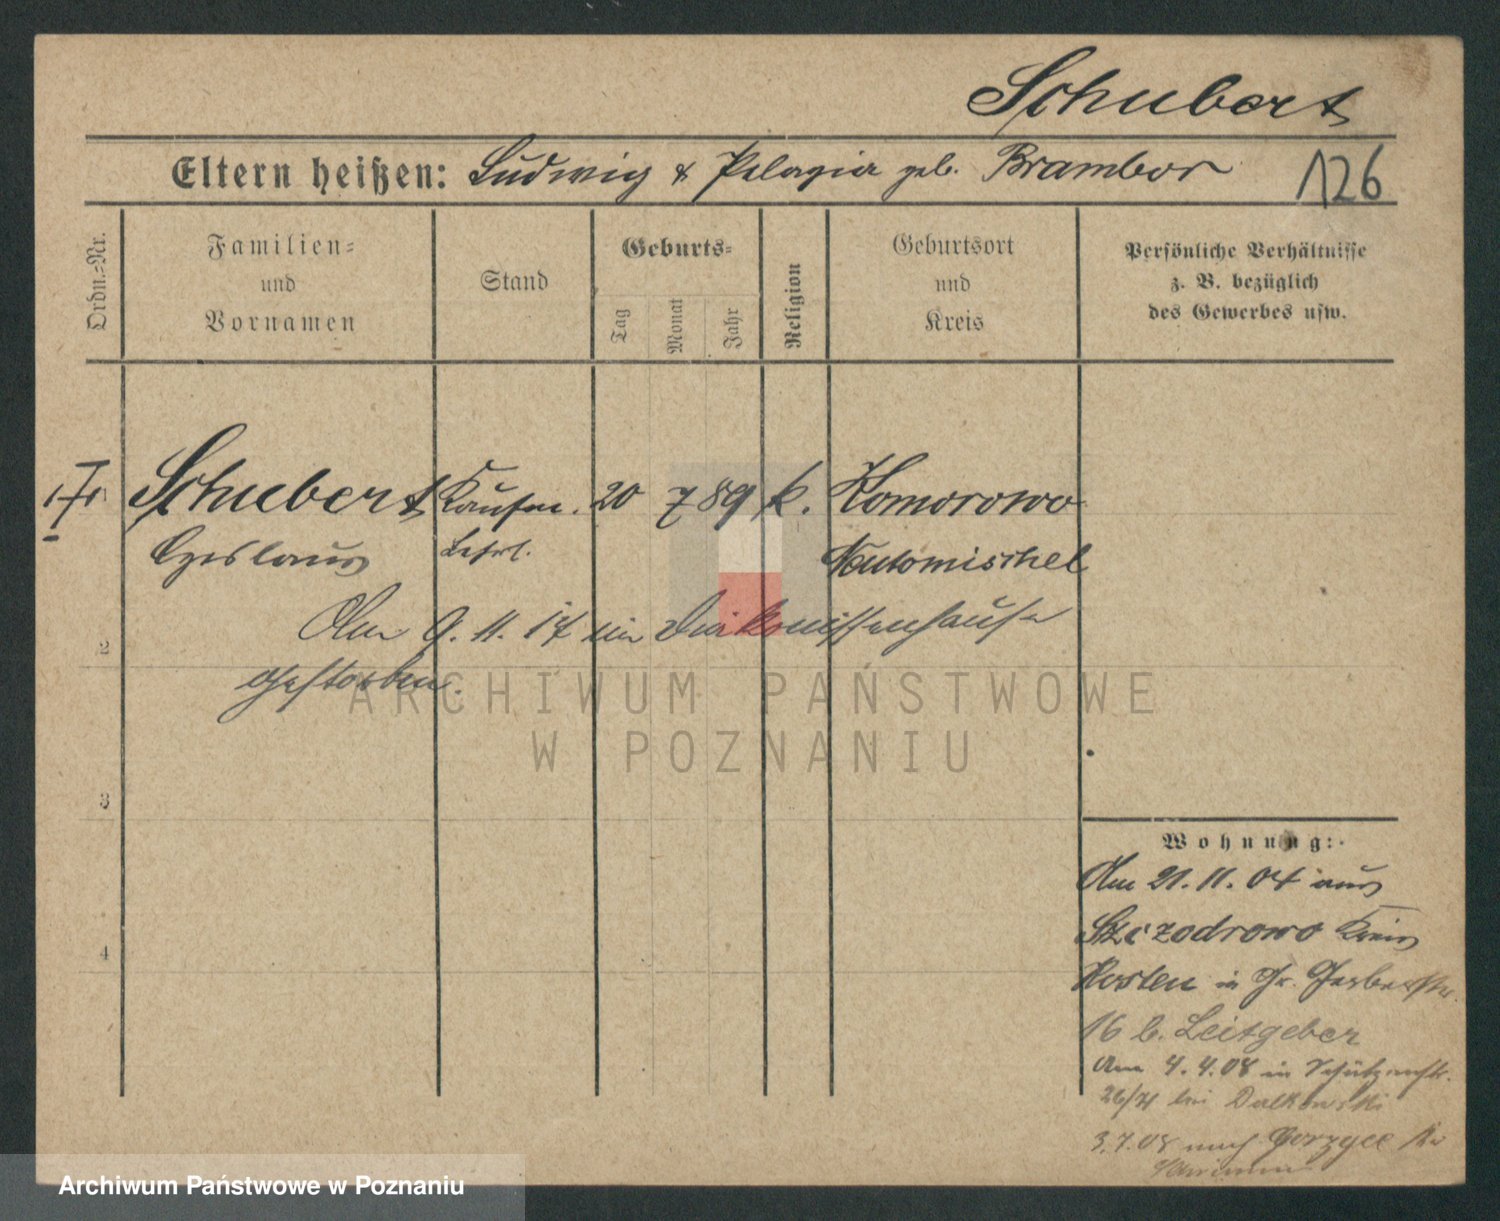 Schubert
Eltern heißen: Ludwig & Pelagia geb. Brambor
126
Ordn.=Nr.
Familien=
und
Vornamen
Stand
Geburts=
Tag
Monat
Jahr
Religion
Geburtsort
und
Kreis
Persönliche Verhältnisse
z. B. bezüglich
des Gewerbes usw.
Schubert Kaufm. 20 7 89 k. Komorowo
Czeslaus Lehrl. Neutomischel
Am 9. 11. 17 im Diakonissenhause
gestorben.
2
3
4
Wohnung:
Am 21. 11. 04 aus
Szczodrowo Kreis
Kosten in Gr. Gerberstr.
16 b. Leitgeber
Am 4. 4. 08 in Schützenstr.
26/ bei Dalkowski
3.7.08 nach Gorzyce Kr
ARCHIWUM PAŃSTWOWE
W POZNANIU
Archiwum Państwowe w Poznaniu